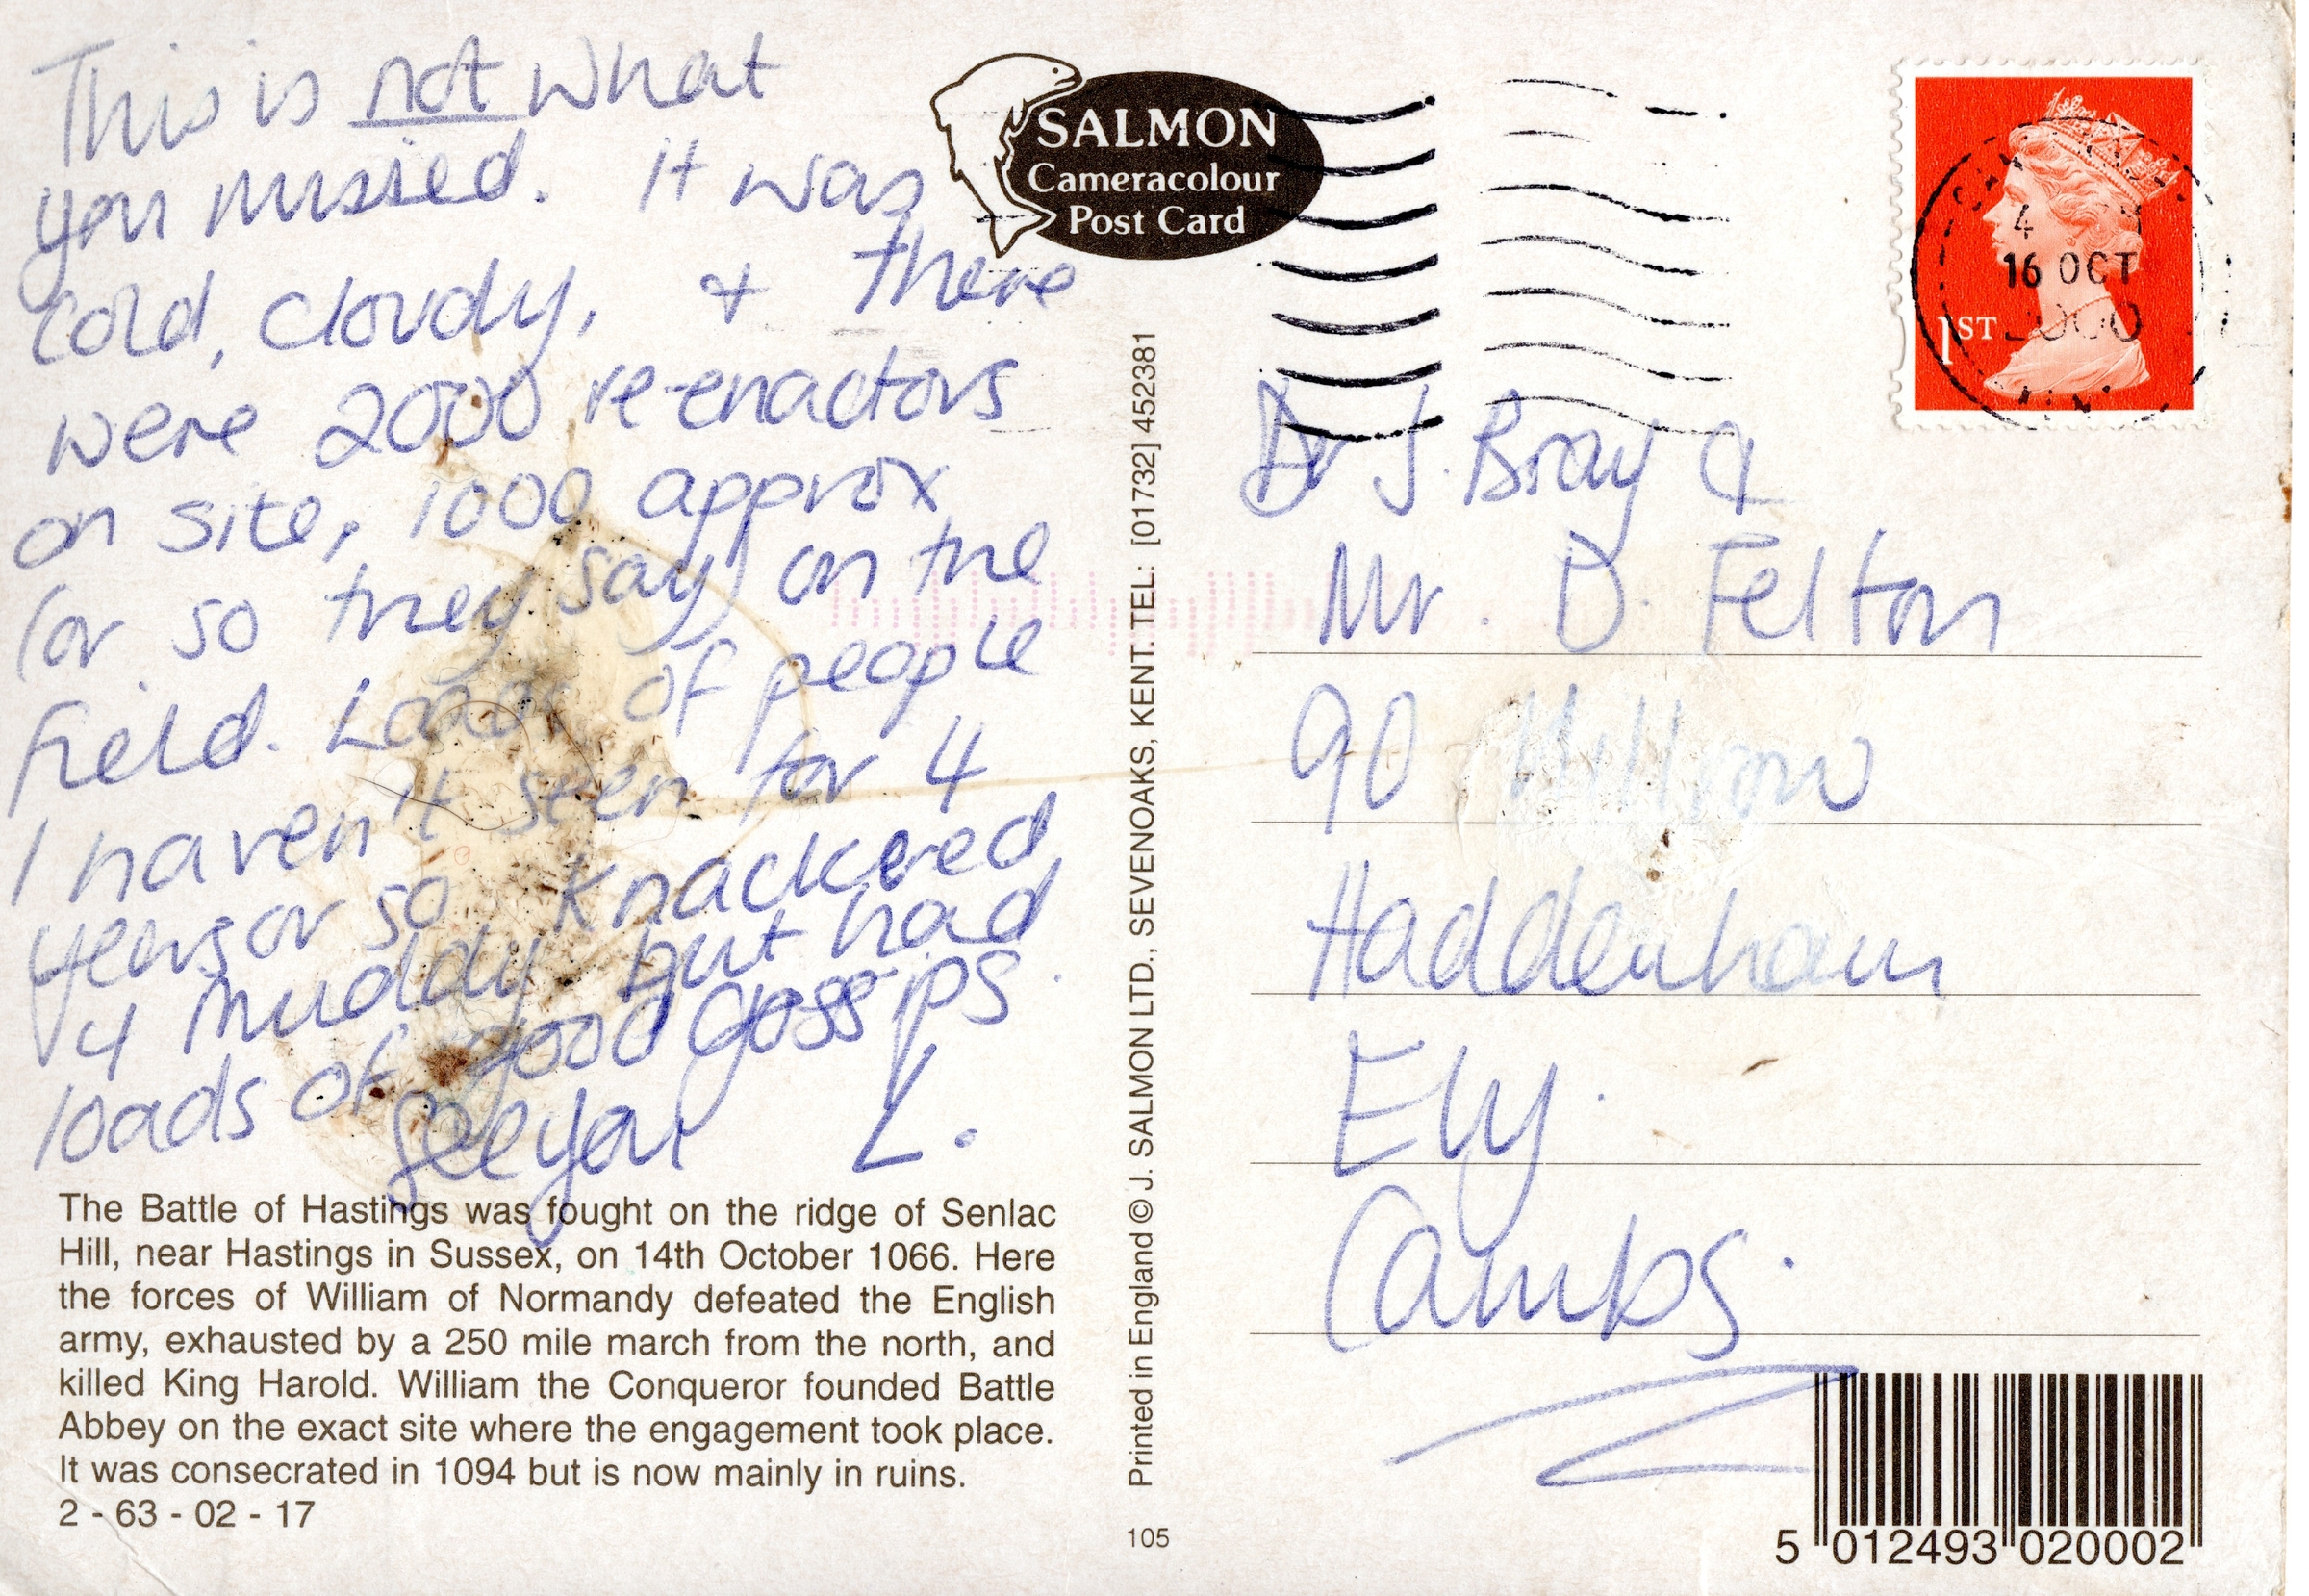 This is not what
you missed. It was
Cold, cloudy, + there
were 2000 re-enactors
on site, 1000 approx
(or so they say) on the
field. Loads of people
I haven't seen for 4
years or so Knackered
& muddy but had
loads of good gossips.
See you L.
The Battle of Hastings was fought on the ridge of Senlac
Hill, near Hastings in Sussex, on 14th October 1066. Here
the forces of William of Normandy defeated the English
army, exhausted by a 250 mile march from the north, and
killed King Harold. William the Conqueror founded Battle
Abbey on the exact site where the engagement took place.
It was consecrated in 1094 but is now mainly in ruins.
2 - 63 - 02 - 17
SALMON
Cameracolour
Post Card
Printed in England © J. SALMON LTD., SEVENOAKS, KENT. TEL: [01732] 452381
105
1ST
16 OCT
2000
Dr J. Bray &
Mr. D. Felton
90 Hillrow
Haddenham
Ely.
Cambs.
5 012493 020002